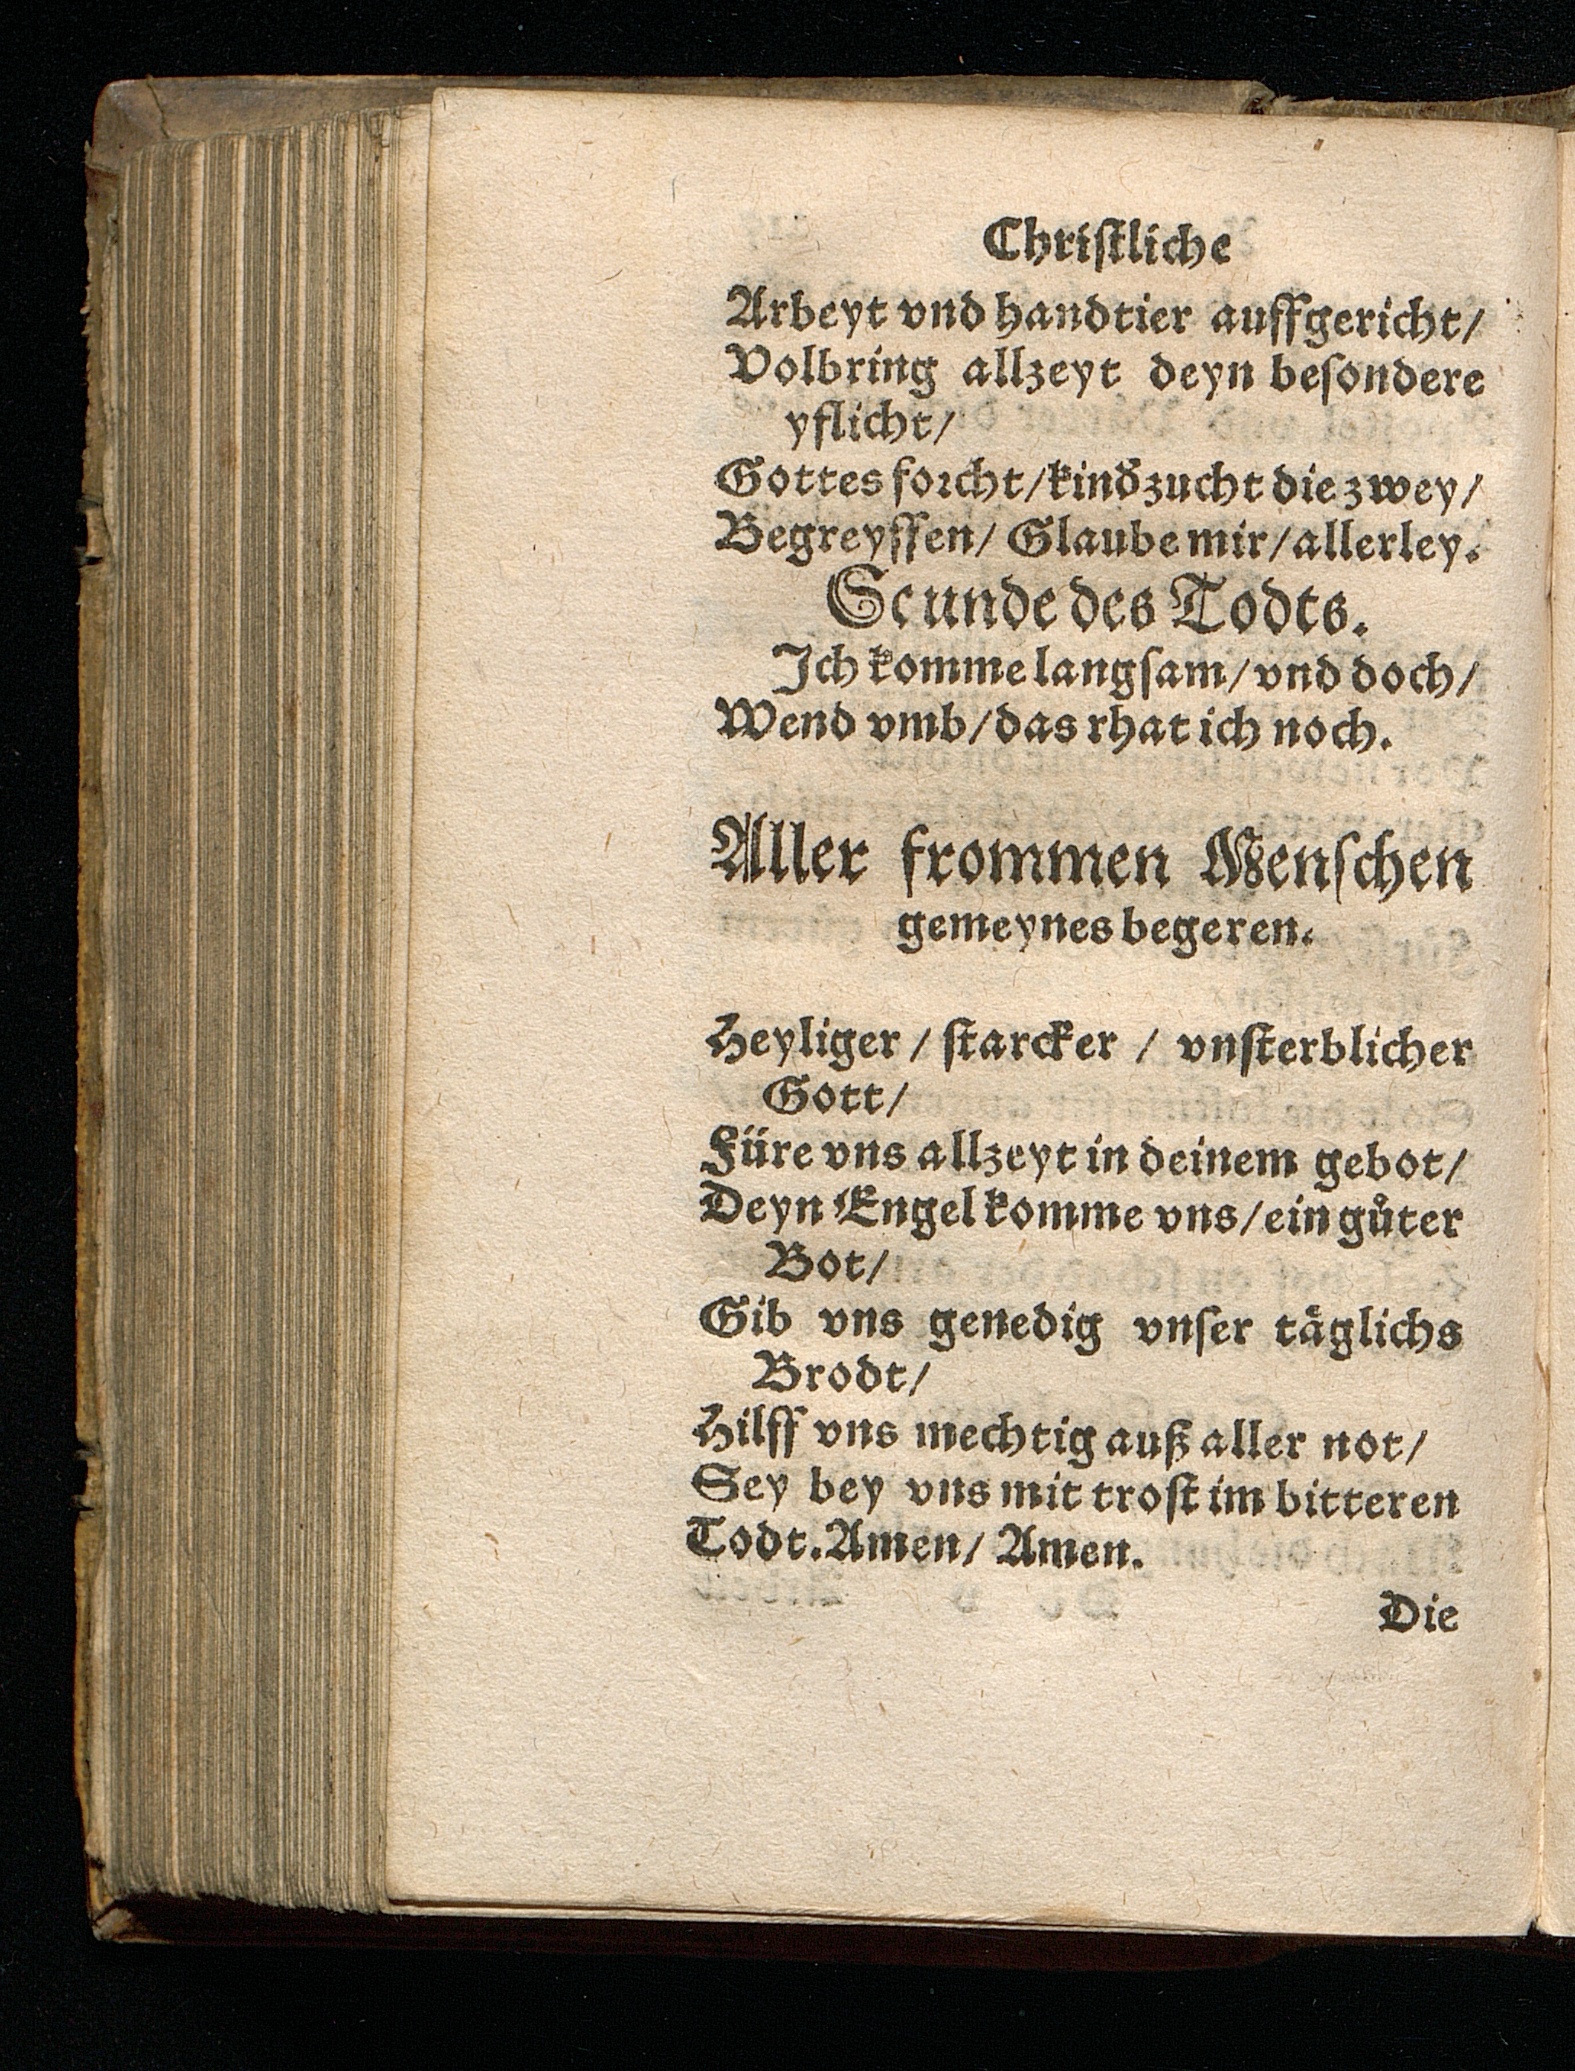 Chriſtliche
Arbeyt vnd handtier auffgericht/
Volbring allzeyt deyn beſondere
yflicht/
Gottes forcht/kindszucht die zwey/
Begreyffen/ Glaube mir/allerley.
Stunde des Todts.
Ich komme langſam/vnd doch/
Wend vmb/das rhat ich noch.
Aller frommen Menſchen
gemeynes begeren.
Heyliger / ſtarcker / vnſterblicher
Gott/
Füre vns allzeyt in deinem gebot/
Deyn Engel komme vns/ein gůter
Bot/
Gib vns genedig vnſer täglichs
Brodt/
Hilff vns mechtig auß aller not/
Sey bey vns mit troſt im bitteren
Todt.Amen/ Amen.
Die